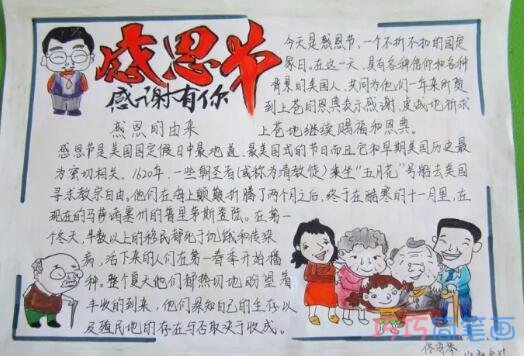 感恩节
感谢有你
今天是感恩节，一个不折不扣的国定
假日。在这一天，具有各种信仰和各种
背景的美国人，共同为他们一年来所受
到上苍的恩典表示感谢，虔诚地祈求
上苍地继续赐福和恩典。
感恩的由来
感恩节是美国国定假日中最地道、最美国式的节日而且它和早期美国历史最
为密切相关。1620年，一些朝圣者(或称为清教徒)乘坐"五月花"号船去美国
寻求教宗自由。他们在海上颠簸折腾了两个月之后，终于在酷寒的十一月里，在
现在的马萨诸塞州的普里茅斯登陆。在第一
个冬天，半数以上的移民都死于饥饿和传染
病，活下来的人们在第一春季开始播
种。整个夏天他们都热切地盼望着
丰收的到来，他们深知自己的生存以
及殖民地的存在与否取决于收成。
巧巧简笔画